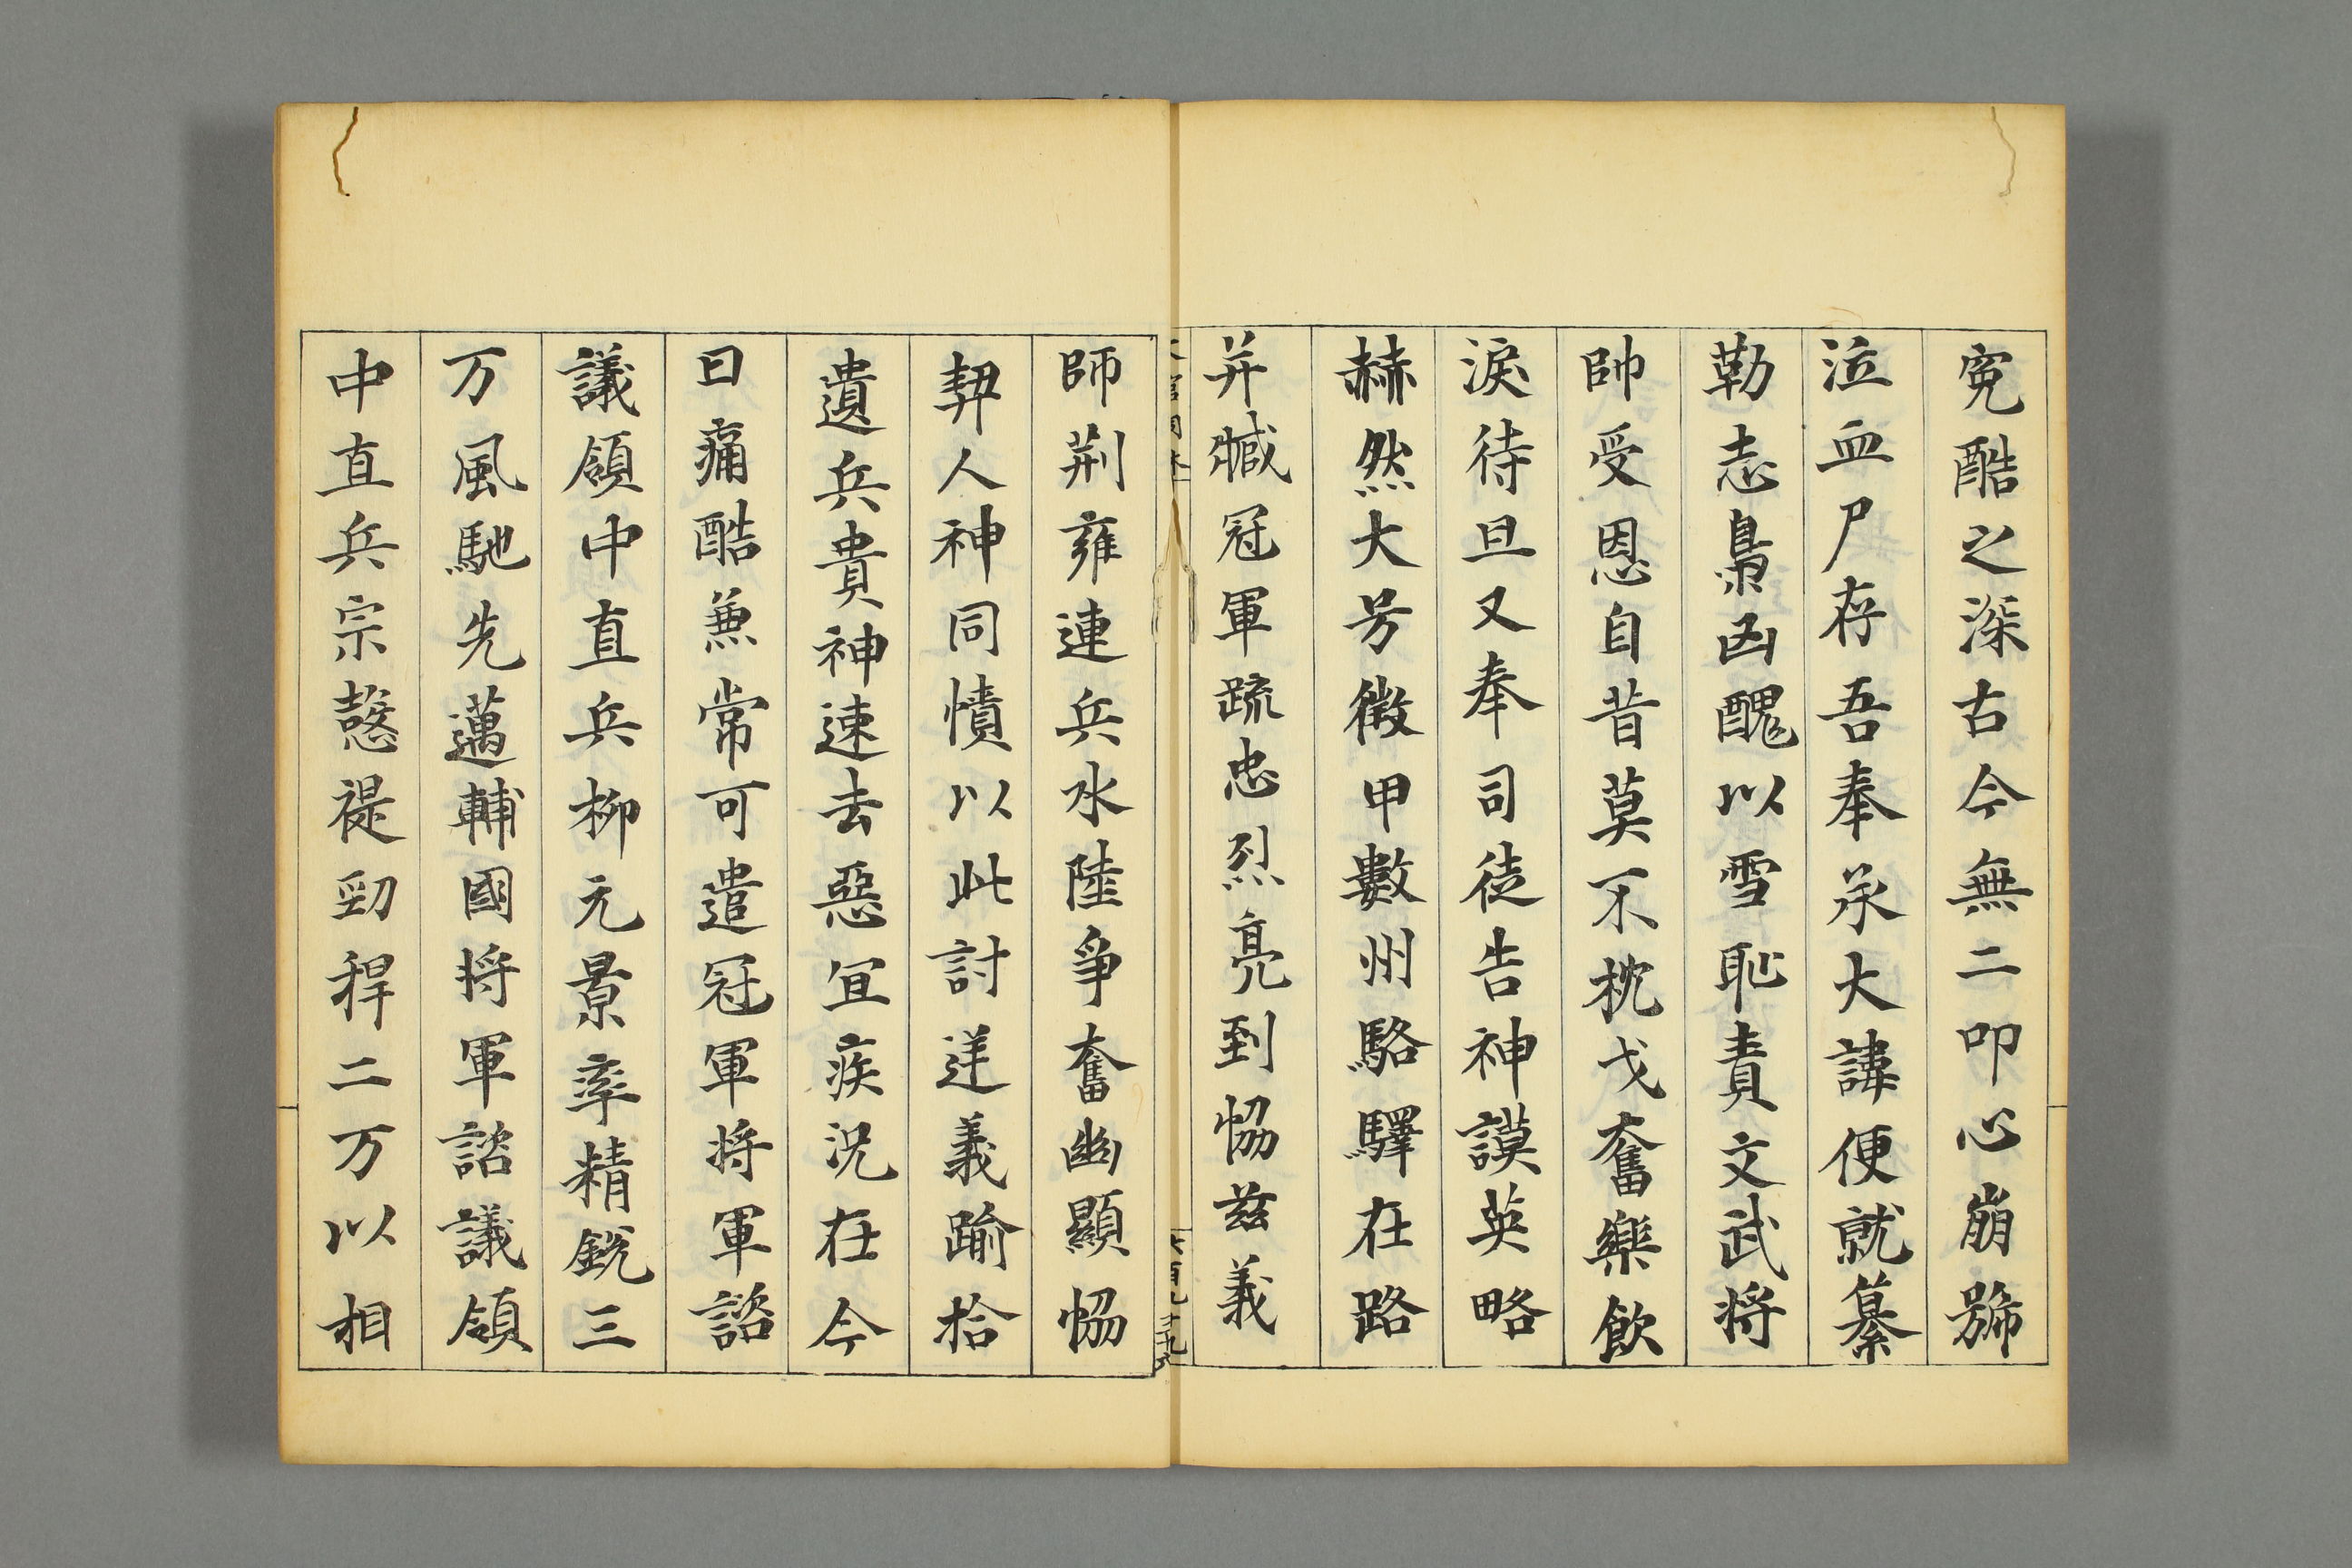 寃酷之深古今無二叩心崩號
泣血尸存吾奉承大諱便就纂
勒志梟凶醜以雪恥責文武將
帥受恩自昔莫不枕戈奮樂飲
淚待旦又奉司徒告神謨英略
赫然大号徵甲數州駱驛在路
并臧冠軍疏忠烈亮到恊兹義
師荆雍連兵水陸爭奮幽顯恊
契人神同憤以此討逆義踰拾
遺兵貴神速去惡宜疾況在今
日痛酷兼常可遣冠軍将軍諮
議領中直兵柳元景率精銳三
万風馳先邁輔國将軍諮議領
中直兵宗慤禔勁稈二万以相